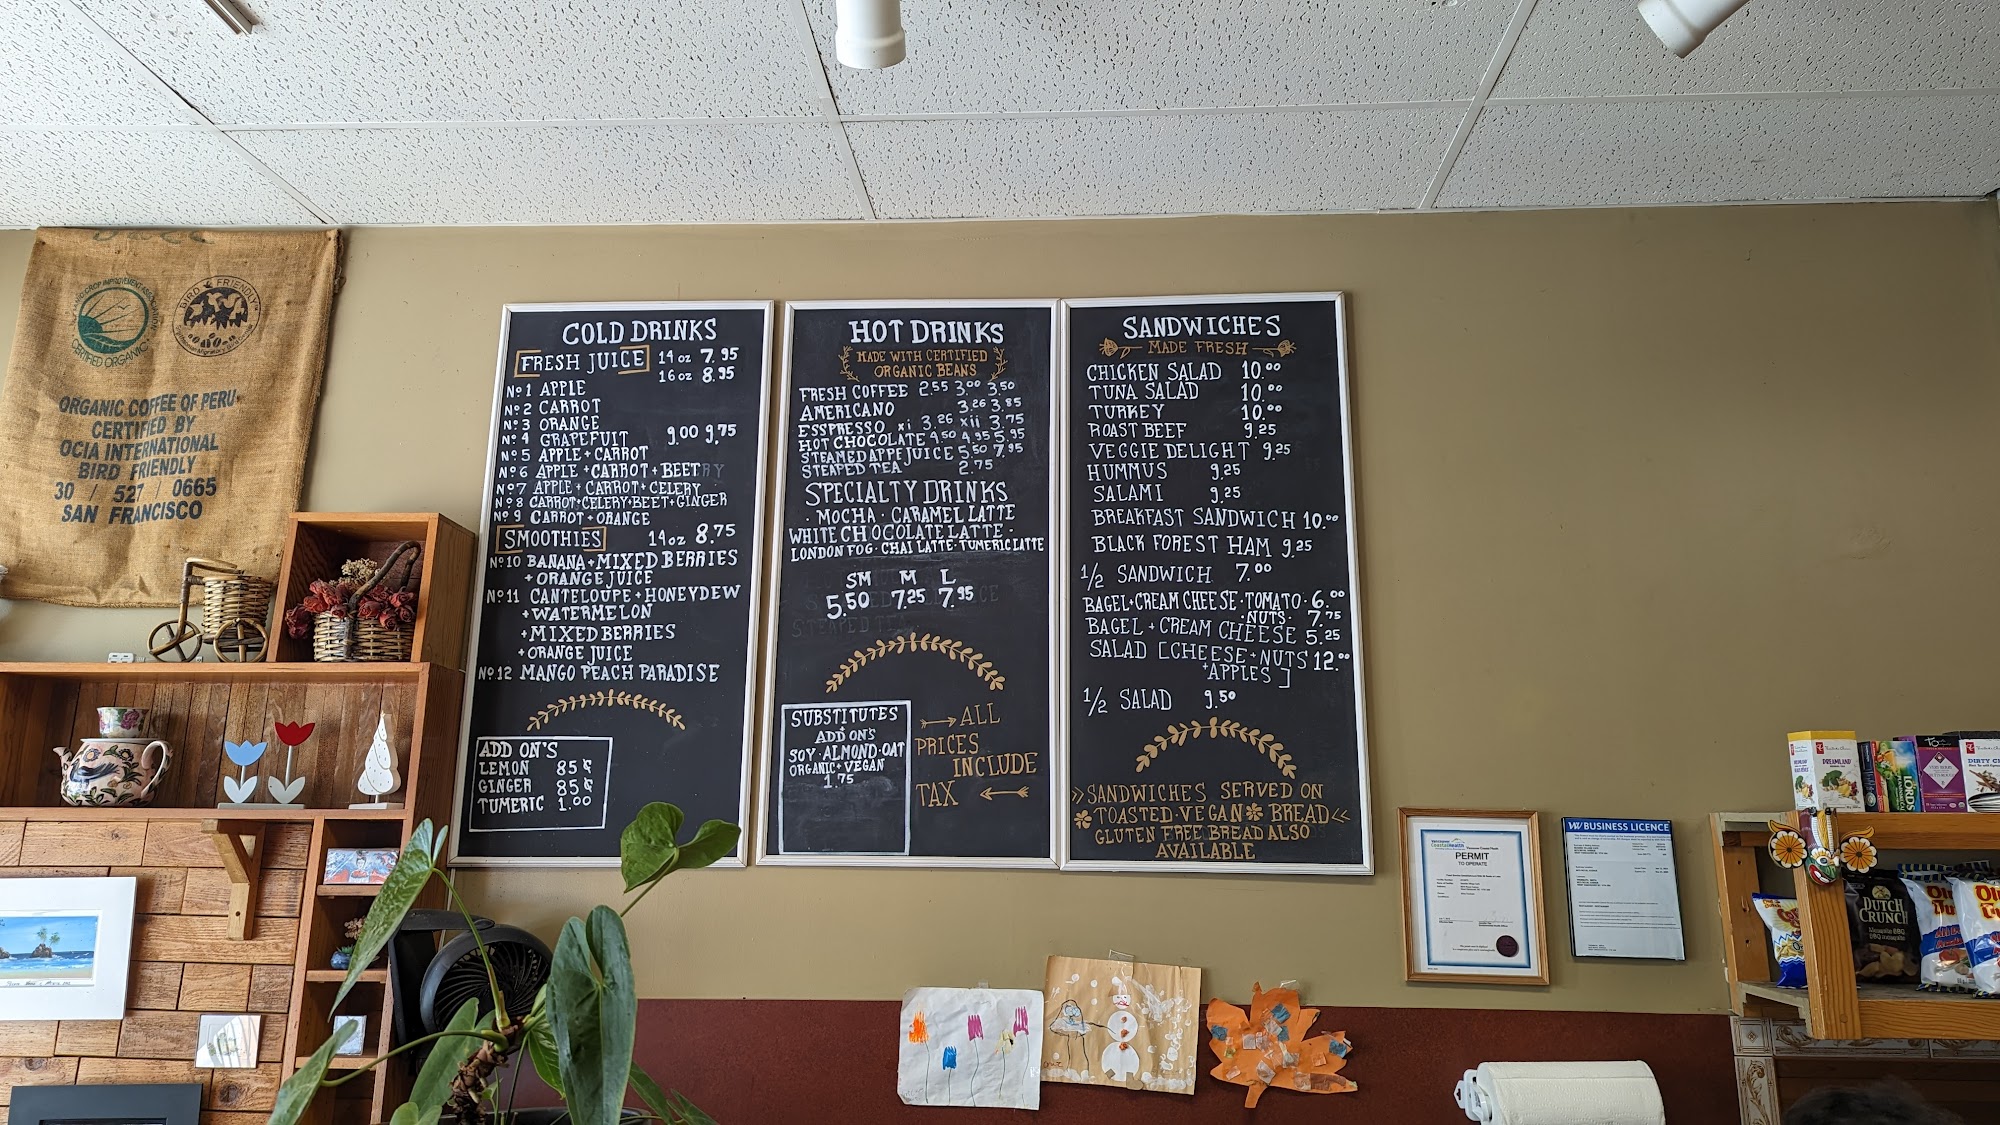 CERTIFIED ORGANIC
BIRD FRIENDLY
ORGANIC COFFEE OF PERU.
CERTIFIED BY
OCIA INTERNATIONAL
BIRD FRIENDLY
30 / 527 / 0665
SAN FRANCISCO
COLD DRINKS
FRESH JUICE 14oz 7.95
16oz 8.95
No1 APPLE
No2 CARROT
No3 ORANGE
No4 GRAPEFUIT 9.00 9.75
No5 APPLE+CARROT
No6 APPLE+CARROT+BEET
No7 APPLE+CARROT+CELERY
No8 CARROT+CELERY+BEET+GINGER
No9 CARROT+ORANGE
SMOOTHIES 14oz 8.75
No10 BANANA+MIXED BERRIES
+ORANGE JUICE
No11 CANTELOUPE+HONEYDEW
+WATERMELON
+MIXED BERRIES
+ORANGE JUICE
No12 MANGO PEACH PARADISE
ADD ON'S
LEMON 85¢
GINGER 85¢
TUMERIC 1.00
HOT DRINKS
MADE WITH CERTIFIED
ORGANIC BEANS
FRESH COFFEE 2.55 3.00 3.50
AMERICANO 3.26 3.85
ESSPRESSO xi 3.26 xii 3.75
HOT CHOCOLATE 4.50 4.95 5.95
STEAMED APPE JUICE 5.50 7.95
STEAPED TEA 2.75
SPECIALTY DRINKS
· MOCHA · CARAMEL LATTE
WHITE CHOCOLATE LATTE ·
LONDON FOG · CHAI LATTE · TUMERIC LATTE
SM M L
5.50 7.25 7.95
SUBSTITUTES
ADD ON'S
SOY · ALMOND · OAT
ORGANIC + VEGAN
1.75
ALL
PRICES
INCLUDE
TAX
SANDWICHES
MADE FRESH
CHICKEN SALAD 10.00
TUNA SALAD 10.00
TURKEY 10.00
ROAST BEEF 9.25
VEGGIE DELIGHT 9.25
HUMMUS 9.25
SALAMI 9.25
BREAKFAST SANDWICH 10.00
BLACK FOREST HAM 9.25
1/2 SANDWICH 7.00
BAGEL+CREAM CHEESE · TOMATO · 6.00
· NUTS · 7.75
BAGEL + CREAM CHEESE 5.25
SALAD [CHEESE+NUTS 12.00
+APPLES]
1/2 SALAD 9.50
»SANDWICHES SERVED ON
TOASTED · VEGAN BREAD«
GLUTEN FREE BREAD ALSO
AVAILABLE
CoastalHealth
PERMIT
TO OPERATE
BUSINESS LICENCE
DREAMLAND
DUTCH
CRUNCH